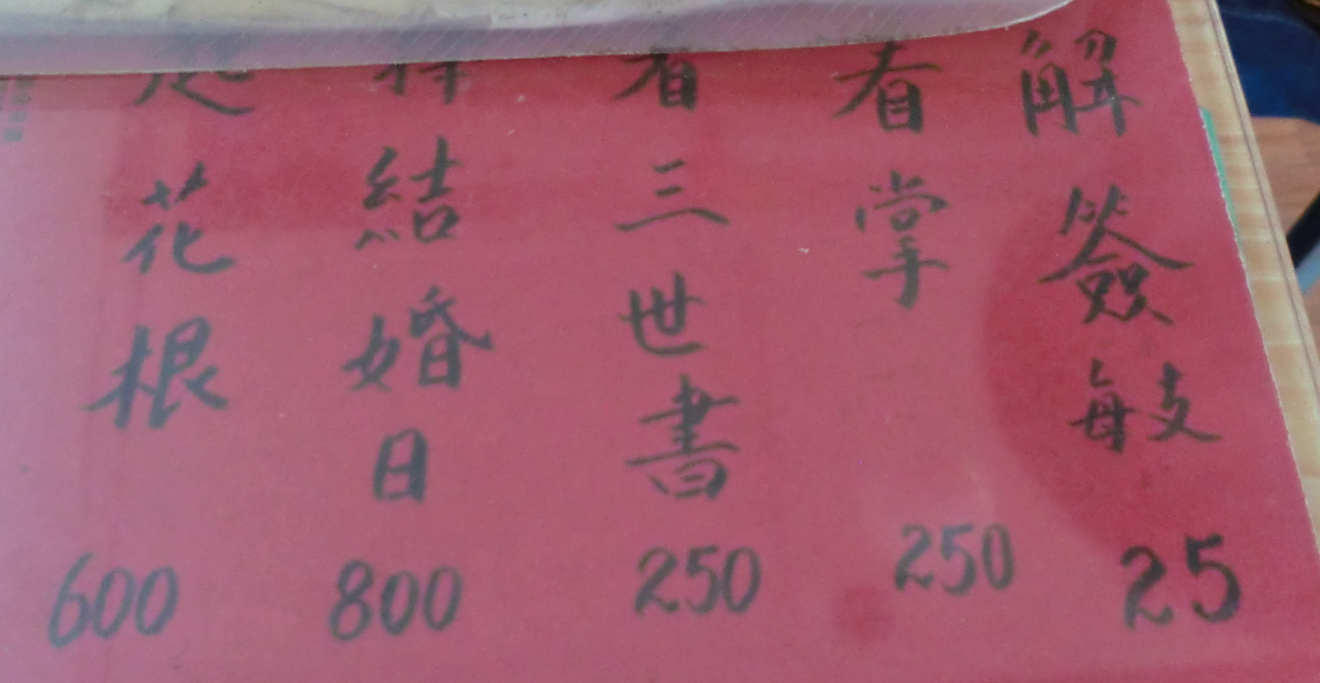 解簽每支 25
看掌 250
看三世書 250
擇結婚日 800
花根 600